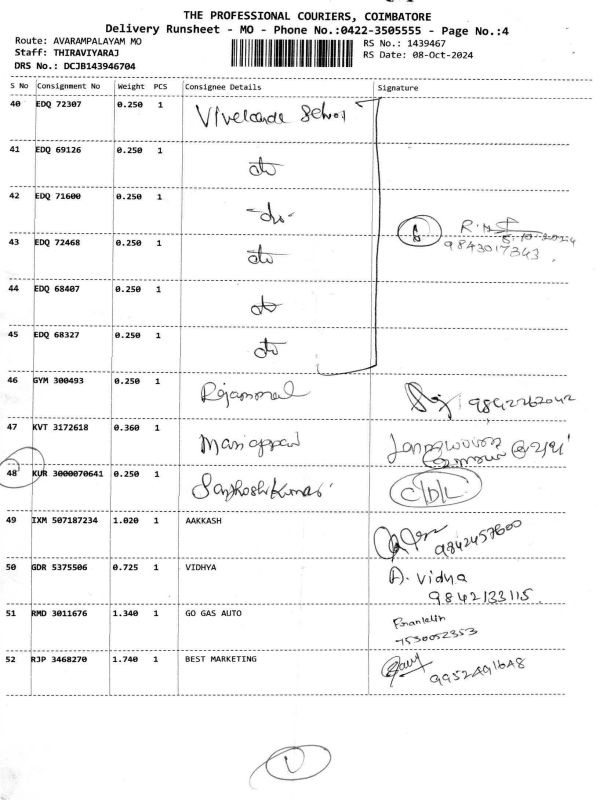 THE PROFESSIONAL COURIERS, COIMBATORE
Delivery Runsheet - MO - Phone No.:0422-3505555 - Page No.:4
Route: AVARAMPALAYAM MO
Staff: THIRAVIYARAJ
DRS No.: DCJB143946704
RS No.: 1439467
RS Date: 08-Oct-2024
S No Consignment No Weight PCS Consignee Details Signature
40 EDQ 72307 0.250 1
41 EDQ 69126 0.250 1 do
42 EDQ 71600 0.250 1 -do-
6 9843017343
43 EDQ 72468 0.250 1 do
44 EDQ 68407 0.250 1 do
45 EDQ 68327 0.250 1 do
46 GYM 300493 0.250 1 Rajammal 9842262042
47 KVT 3172618 0.360 1 Mariappan
48 KUR 3000070641 0.250 1 Santhosh Kumar C/D/L
49 IXM 507187234 1.020 1 AAKKASH 9842457600
50 GDR 5375506 0.725 1 VIDHYA A. Vidya
9842133115
51 RMD 3011676 1.340 1 GO GAS AUTO Franklin
7530052353
52 RJP 3468270 1.740 1 BEST MARKETING 9952491648